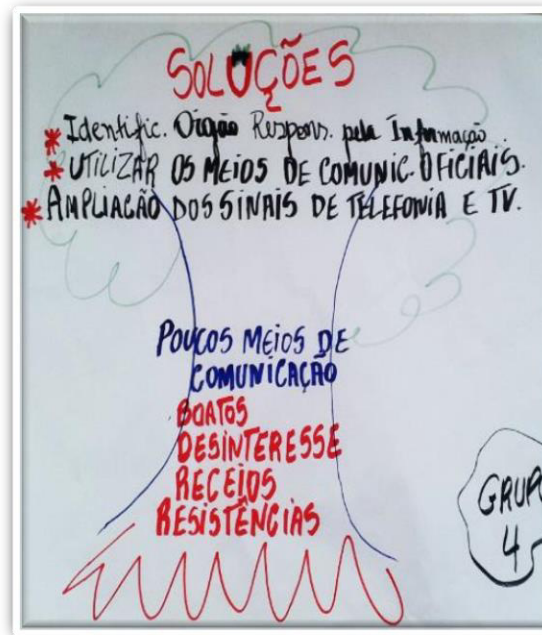 SOLUÇÕES
* Identific. Orgão Respons. pela Informação.
* UTILIZAR OS MEIOS DE COMUNIC. OFICIAIS.
* AMPLIAÇÃO DOS SINAIS DE TELEFONIA E TV.
POUCOS MEIOS DE
COMUNICAÇÃO
BOATOS
DESINTERESSE
RECEIOS
RESISTÊNCIAS
GRUPO
4